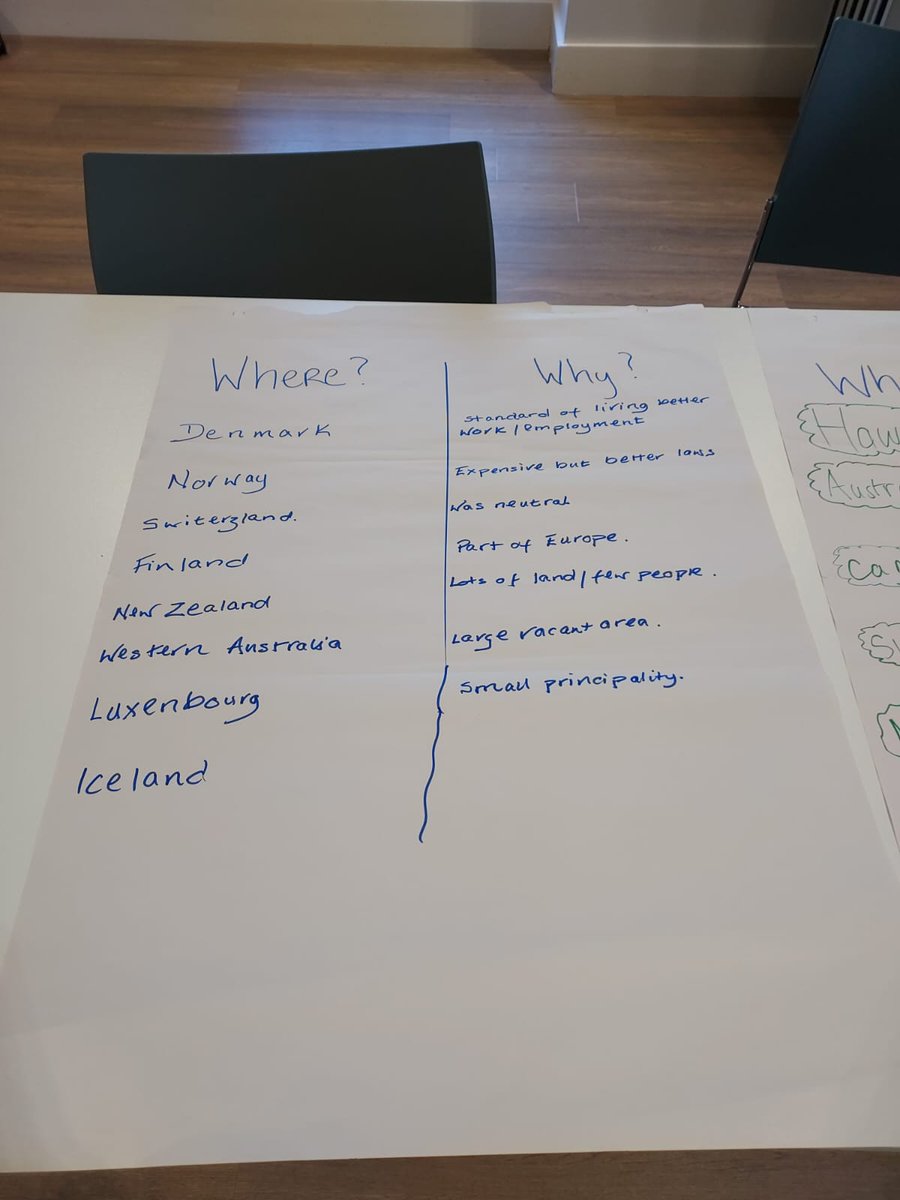 Where?
Denmark
Norway
Switerzland.
Finland
New Zealand
Western Australia
Luxenbourg
Iceland
Why?
Standard of living better
work/employment
Expensive but better laws
Was neutral
Part of Europe.
Lots of land/few people.
Large vacant area.
Small principality.
Wh
Haw
Austr
Ca